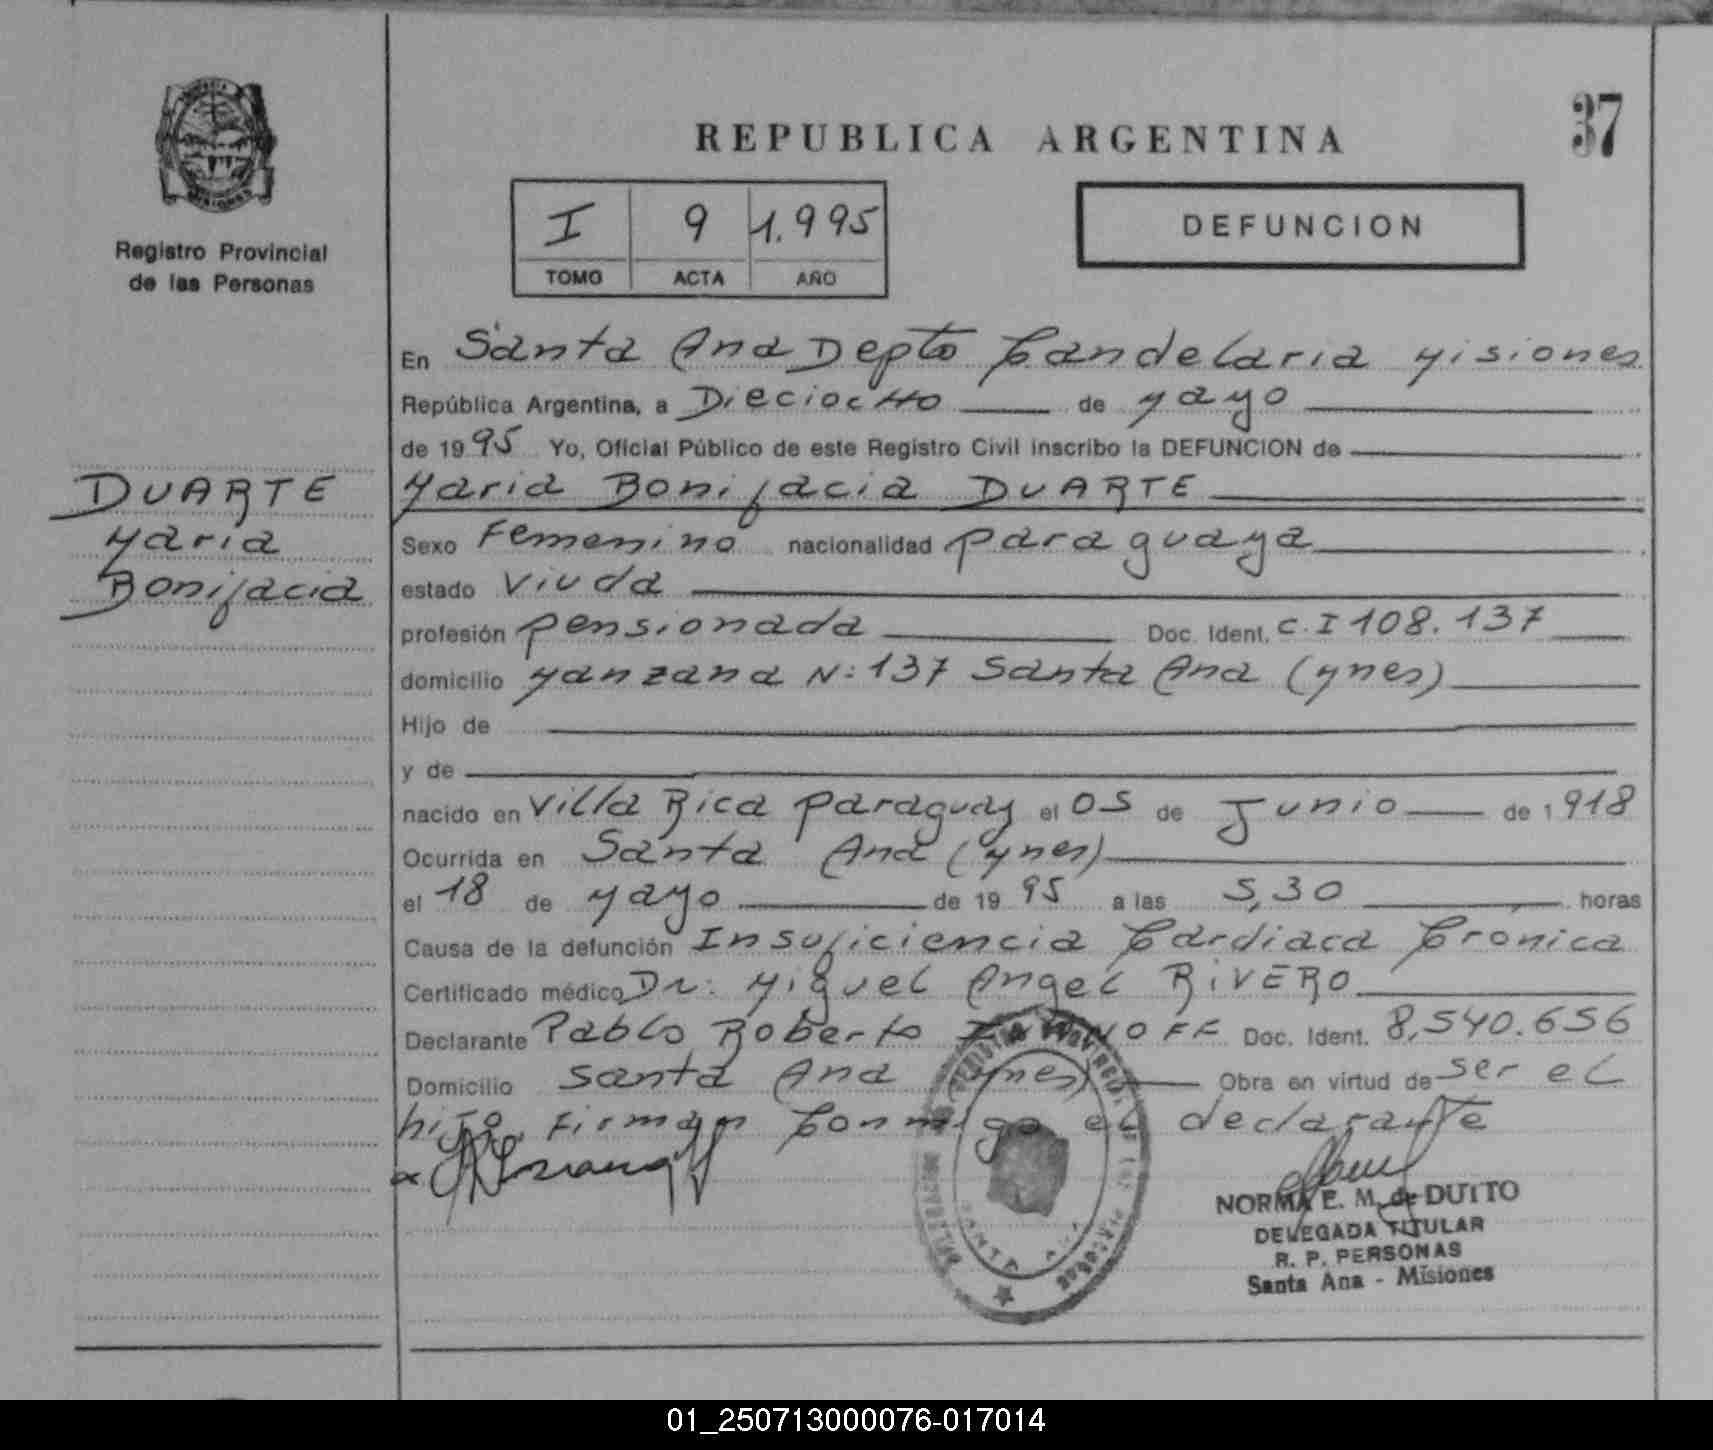 37
REPUBLICA ARGENTINA
MISIONES
Registro Provincial
de las Personas
I 9 1.995
TOMO ACTA AÑO
DEFUNCION
En Santa Ana Depto Candelaria Misiones
República Argentina, a Dieciocho de Mayo
de 1995 Yo, Oficial Público de este Registro Civil inscribo la DEFUNCION de
DUARTE
Maria
Bonifacia
Maria Bonifacia DUARTE
Sexo Femenino nacionalidad paraguaya
estado Viuda
profesión pensionada Doc. Ident. C.I 108.137
domicilio Manzana N: 137 Santa Ana (Mnes)
Hijo de
y de
nacido en Villa Rica Paraguay el 05 de Junio de 1918
Ocurrida en Santa Ana (Mnes)
el 18 de Mayo de 1995 a las 5,30 horas
Causa de la defunción Insuficiencia Cardiaca Crónica
Certificado médico Dr: Miguel Angel RIVERO
Declarante Pablo Roberto Doc. Ident. 8,540.656
Domicilio Santa Ana (Mnes) Obra en virtud de ser el
hijo. Firman Conmigo el declarante
NORMA E. M. de DUTTO
DELEGADA TITULAR
R. P. PERSONAS
Santa Ana - Misiones
01_250713000076-017014